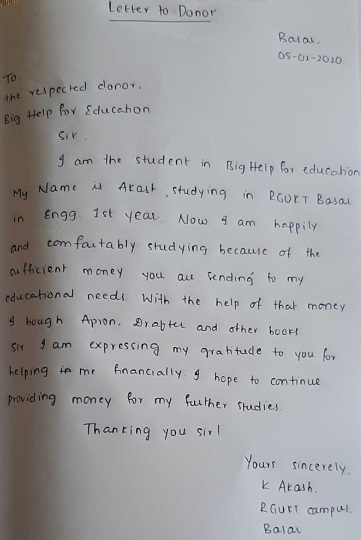 Letter to Donor
Basar.
05-02-2020
To.
the respected donor,
Big Help for Education
Sir.
I am the student in Big Help for education
My Name is Akash, studying in RGUKT Basar
in Engg. 1st year. Now I am happily
and comfartably studying because of the
sufficient money you are sending to my
educational needs. With the help of that money
I bough Apron, Drafter and other books.
Sir I am expressing my gratitude to you for
helping me financially. I hope to continue
providing money for my further studies.
Thanking you sir!
Yours sincerely.
K Akash.
RGUKT campus.
Basar